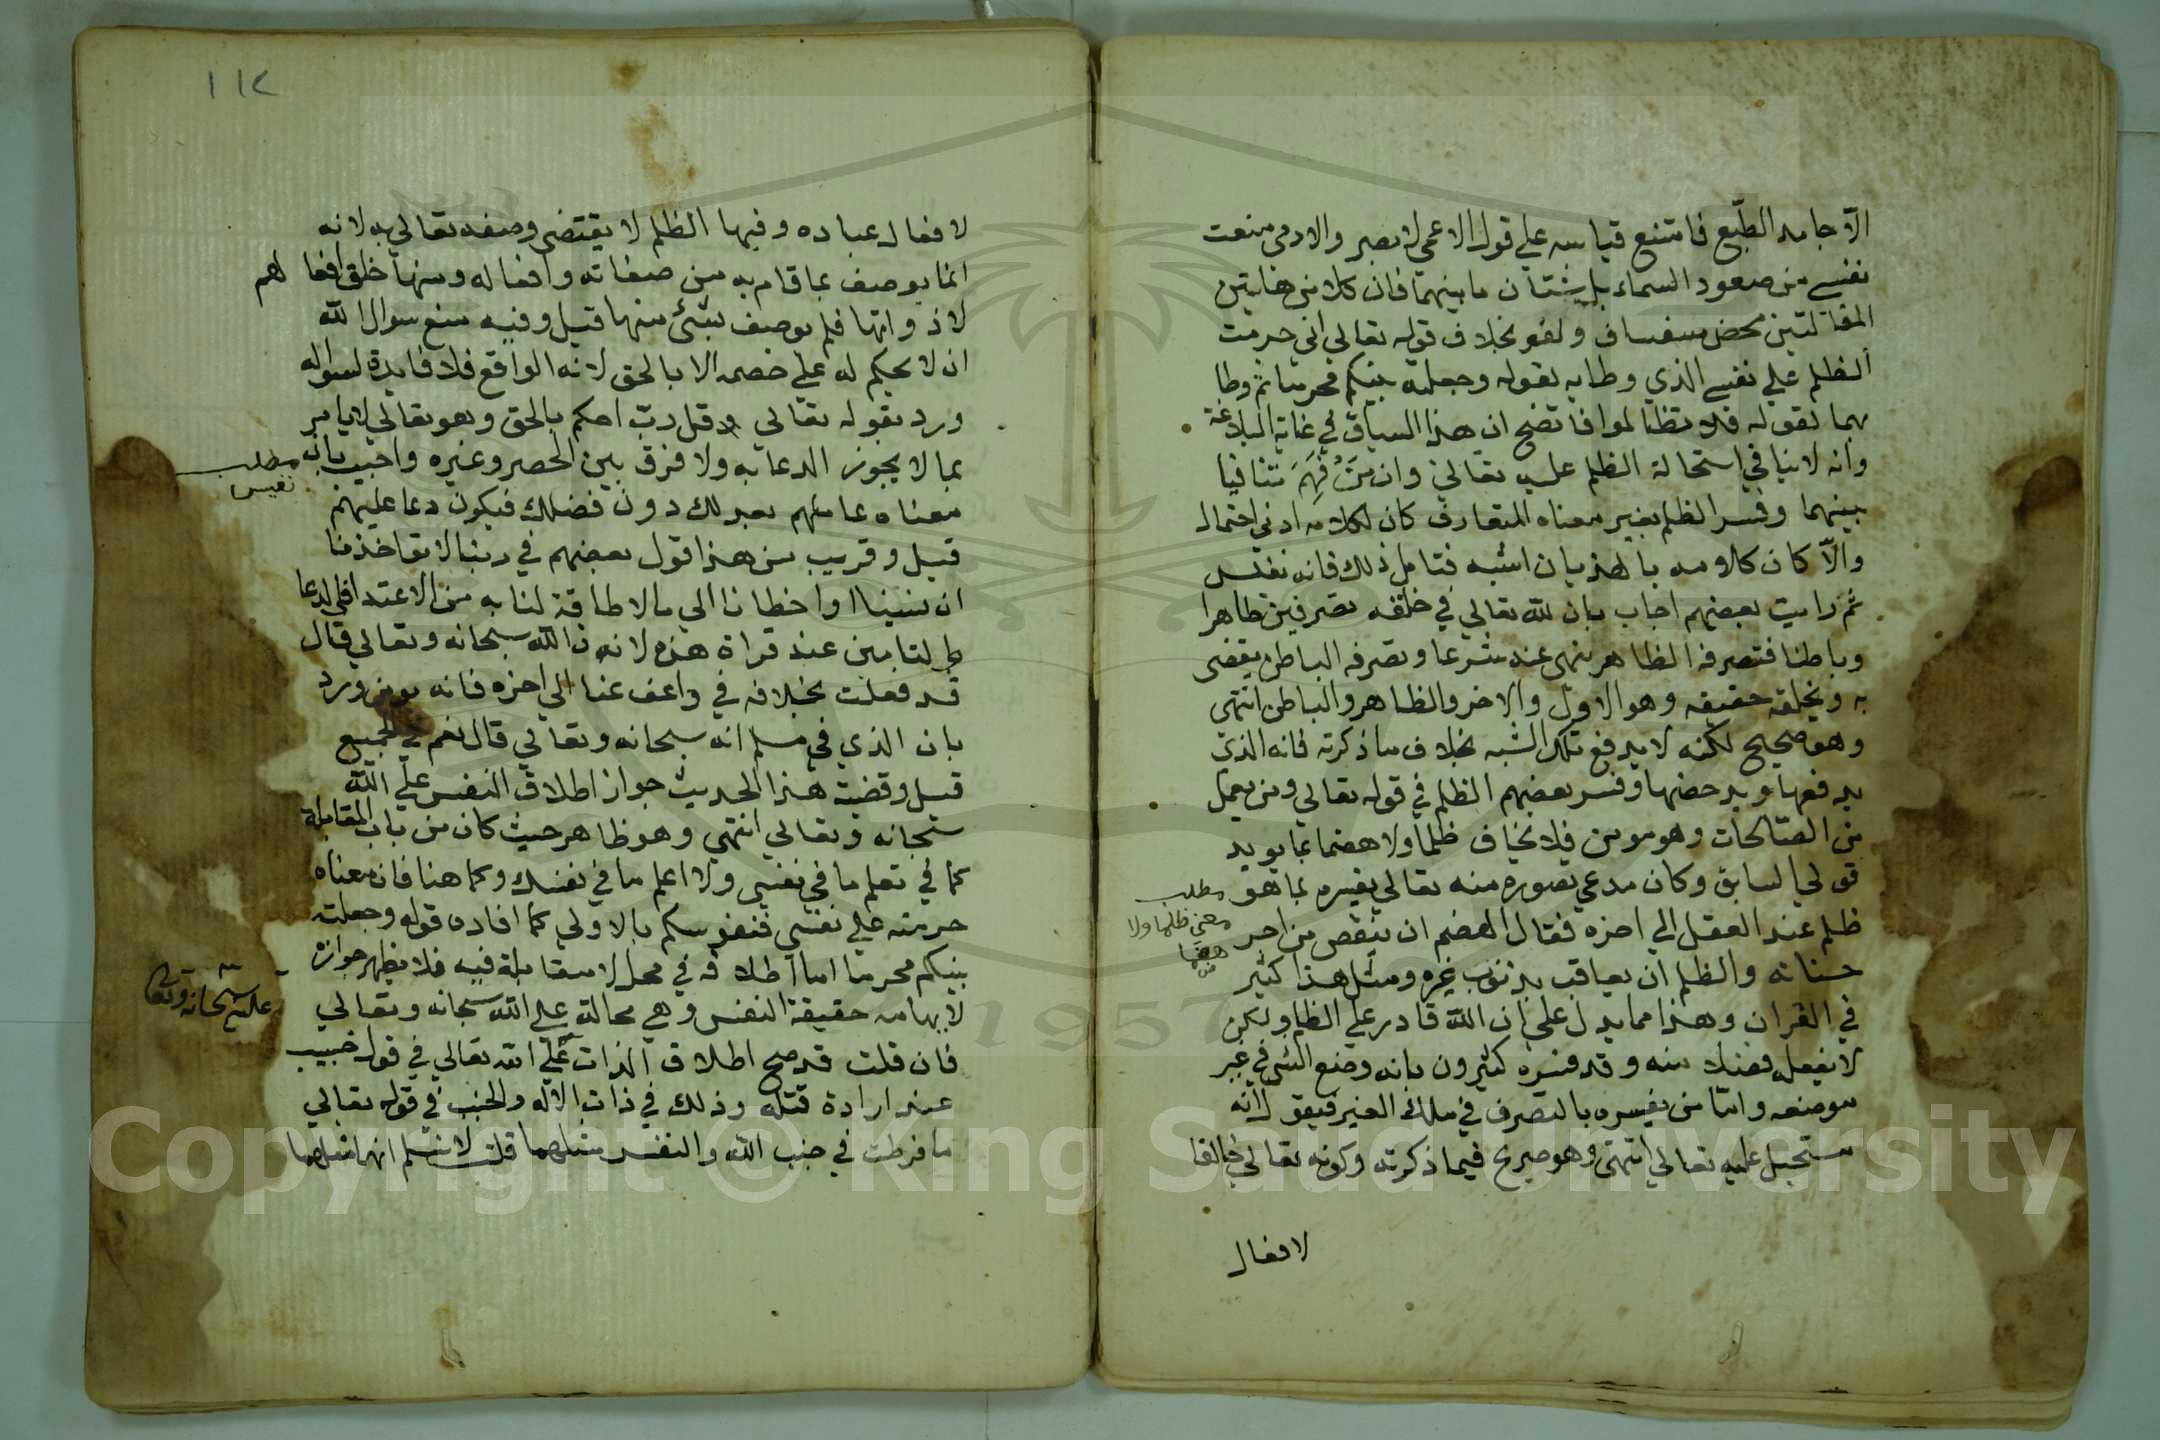 الا جامد الطبع فامتنع قياسه علي قول الاعمي لا يبصر والادمي منعت
نفسي من صعود السماء بل شتان ما بينهما فان كلا من هاتين
المقالتين محض سفساف ولغو بخلاف قوله تعالي اني حرمت
الظلم علي نفسي الذي وطا به لقوله وجعلته بينكم محرما ثم وطا
بهما لقوله فلا تظالموا فاتضح ان هذا السياق في غاية البلاغة
وانه لا ينافي استحالة الظلم عليه تعالي وان من فهم تنافيا
بينهما وفسر الظلم بغير معناه المتعارف كان لكلامه ادني احتمال
والا كان كلامه بالهذيان اشبه فتامل ذلك فانه نفيس
ثم رايت بعضهم اجاب بان لله تعالي في خلقه تصرفين ظاهرا
وباطنا فتصرفه الظاهر ينهي عنه شرعا وتصرفه الباطن يقضي
به ويخلقه حقيقه وهو الاول والاخر والظاهر والباطن انتهي
وهو صحيح لكنه لا يدفع تلك الشبه بخلاف ما ذكرته فانه الذي
يدفعها ويدحضها وفسر بعضهم الظلم في قوله تعالي ومن يعمل
من الصالحات وهو مومن فلا يخاف ظلما ولا هضما بما يويد
قولي السابق وكان مدعي تصوره منه تعالي يفسره بما هو
ظلم عند العقل الي اخره فقال الهضم ان ينقص من اجر
حسناته والظلم ان يعاقب بذنوب غيره ومثل هذا كثير
في القران وهذا مما يدل علي ان الله قادر علي الظلم ولكن
لا يفعله فضلا منه وقد فسره كثيرون بانه وضع الشي في غير
موضعه واما من يفسره بالتصرف في ملك الغير فيقول انه
مستحيل عليه تعالي انتهي وهو صريح فيما ذكرته وكونه تعالي خالقا
مطلب
معني ظلما ولا
هضما
لافعال
١١٢
لافعال عباده وفيها الظلم لا يقتضي وصفه تعالي به لانه
انما يوصف بما قام به من صفاته وافعاله ومنها خلق افعالهم
لا ذواتها فلم يوصف بشئ منها قيل وفيه منع سوال الله
ان لا يحكم له علي خصمه الا بالحق لانه الواقع فلا فايدة لسواله
ورد بقوله تعالي وقل رب احكم بالحق وهو تعالي لا يامر
بما لا يجوز الدعا به ولا فرق بين الحصر وغيره واجيب بان
معناه عاملهم بعدلك دون فضلك فيكون دعا عليهم
قيل وقريب من هذا قول بعضهم في ربنا لا تواخذنا
ان نسينا او اخطانا الي ما لا طاقة لنا به من الاعتدا في الدعا
عند قراة هذه لانه الله سبحانه وتعالي قال
قد فعلت بخلافه في واعف عنا الي اخره فانه يومن ورد
بان الذي في مسلم انه سبحانه وتعالي قال نعم في الجميع
قيل وقضية هذا الحديث جواز اطلاق النفس علي الله
سبحانه وتعالي انتهي وهو ظاهر حيث كان من باب المقابلة
كما في تعلم ما في نفسي ولا اعلم ما في نفسك وكما هنا فان معناه
حرمته علي نفسي فنفوسكم بالاولي كما افاده قوله وجعلته
بينكم محرما اما اطلاقه في محل لا مقابلة فيه فلا يظهر جوازه
لايهامه حقيقة النفس وهي محالة علي الله سبحانه وتعالي
فان قلت قد صح اطلاق الذات علي الله تعالي في قول خبيب
عند ارادة قتله وذلك في ذات الاله والجنب في قوله تعالي
ما فرطت في جنب الله والنفس مثلهما قلت لا نسلم انها مثلهما
مطلب
نفيس
عليه سبحانه وتعالي
Copyright © King Saud University
1957